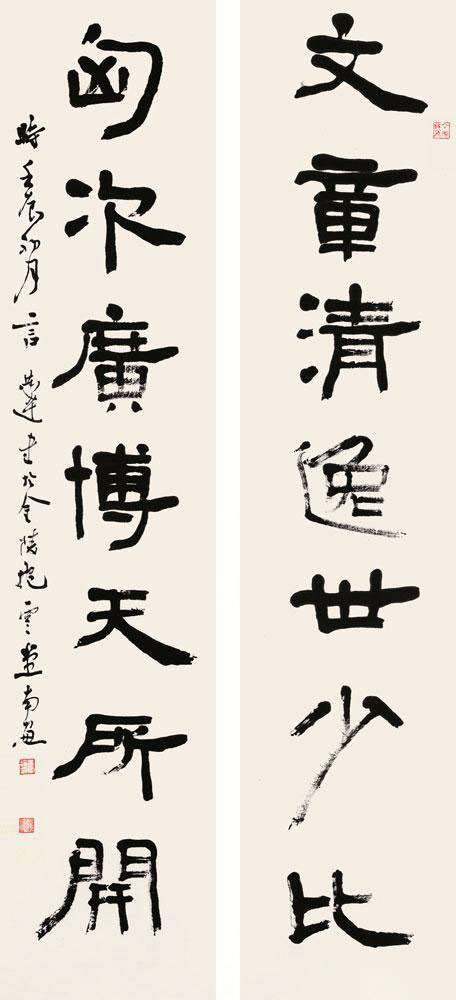 文章清逸世少比
匈次廣博天所開
時壬辰初月言恭達書於金陵抱雲堂南窗